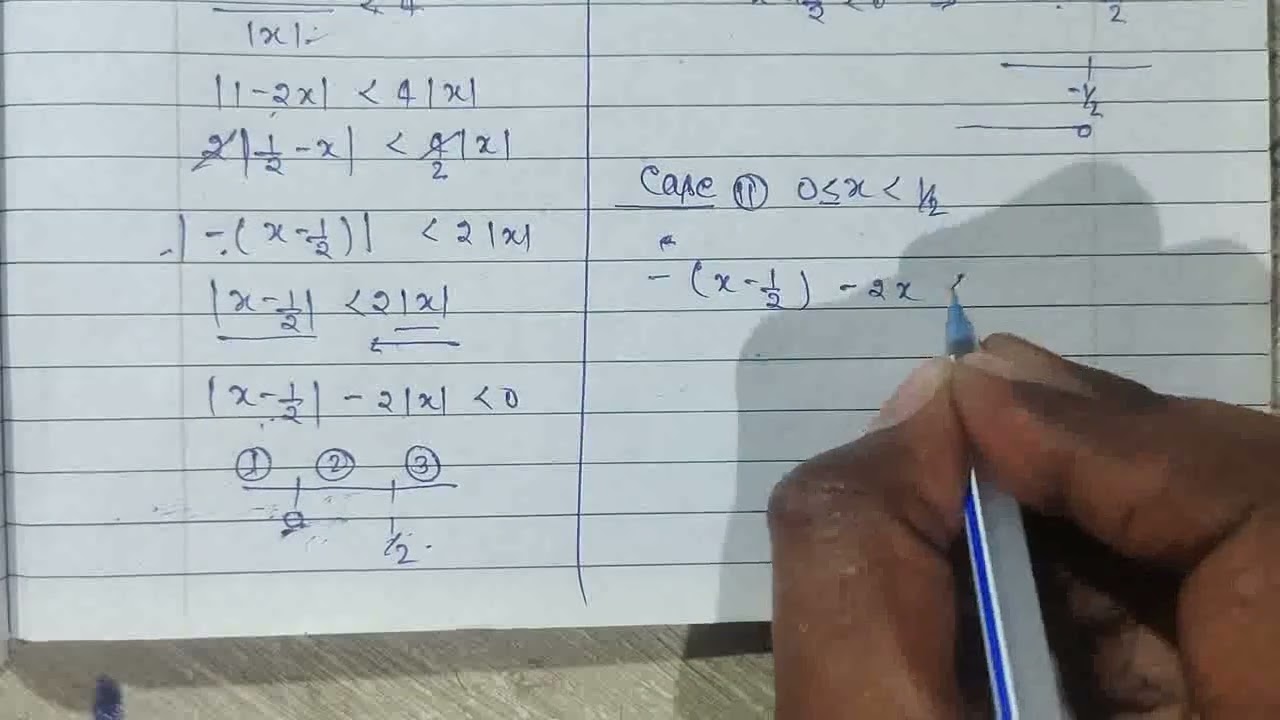 < 4
|x|
|1-2x| < 4|x|
2|1/2 - x| < 4|x|
2
|-(x-1/2)| < 2|x|
|x-1/2| < 2|x|
|x-1/2| - 2|x| < 0
① ② ③
0
1/2
2
-1/2
Case ⑪ 0≤x<1/2
-(x-1/2) - 2x <